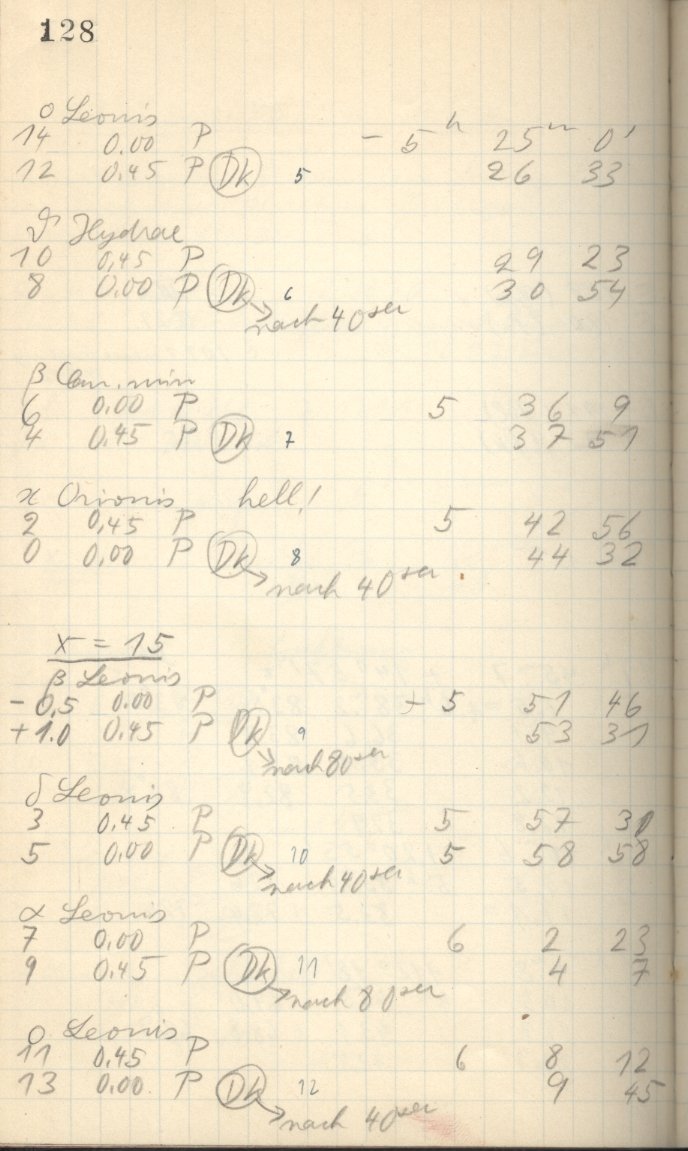 128
o Leonis
14 0.00 P - 5h 25m 0'
12 0.45 P Dk 5 26 33
ϑ Hydrae
10 0,45 P 29 23
8 0.00 P Dk 6 30 54
nach 40 sec
β Can. min
6 0.00 P 5 36 9
4 0.45 P Dk 7 37 51
κ Orionis hell!
2 0,45 P 5 42 56
0 0.00 P Dk 8 44 32
nach 40 sec.
x = 15
β Leonis
- 0,5 0.00 P + 5 51 46
+ 1.0 0.45 P Dk 9 53 31
nach 80 sec
δ Leonis
3 0.45 P 5 57 30
5 0.00 P Dk 10 5 58 58
nach 40 sec
α Leonis
7 0.00 P 6 2 23
9 0.45 P Dk 11 4 7
nach 80 sec
o Leonis
11 0.45 P 6 8 12
13 0.00 P Dk 12 9 45
nach 40 sec